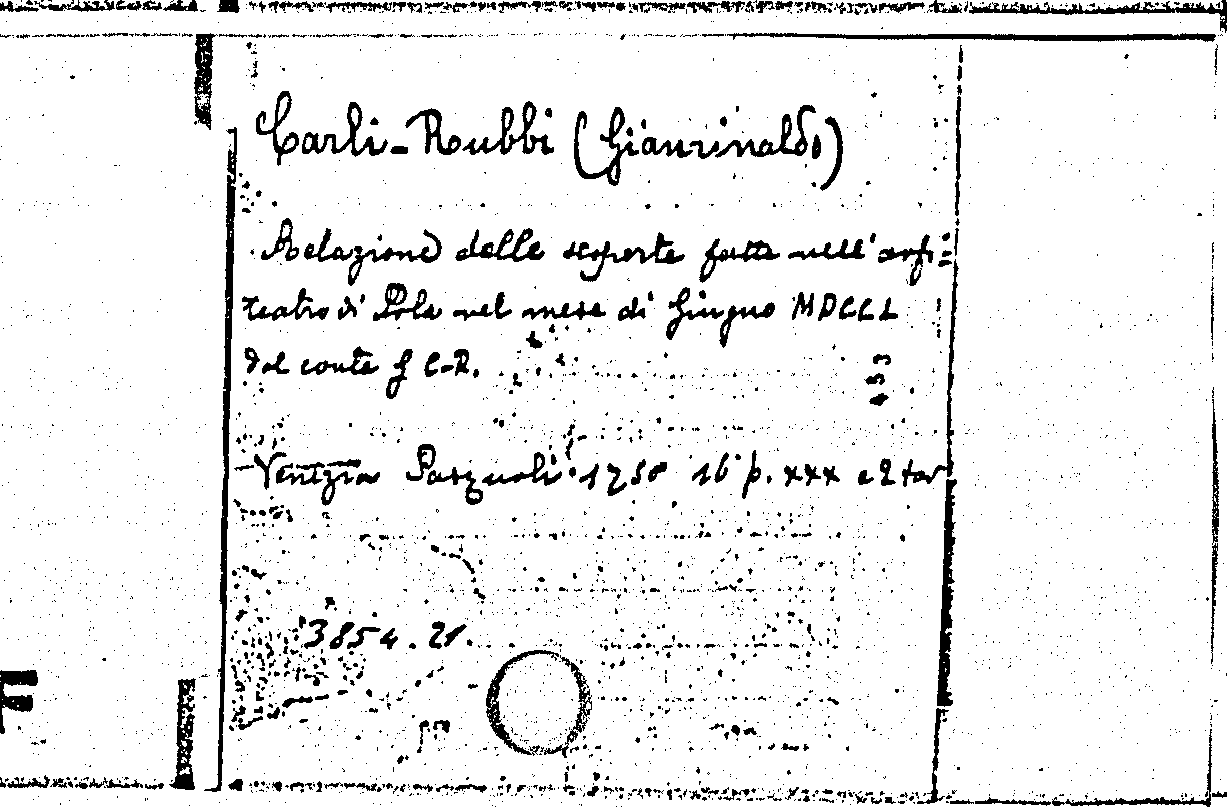 Carli-Rubbi (Gianrinaldo)
Relazione delle scoperte fatte nell' anfi=
teatro di Pola nel mese di Giugno MDCCL
dal conte G C-R.
453
Venezia Pasquali 1750 16° p. xxx e 2 tav
3854.21.
F